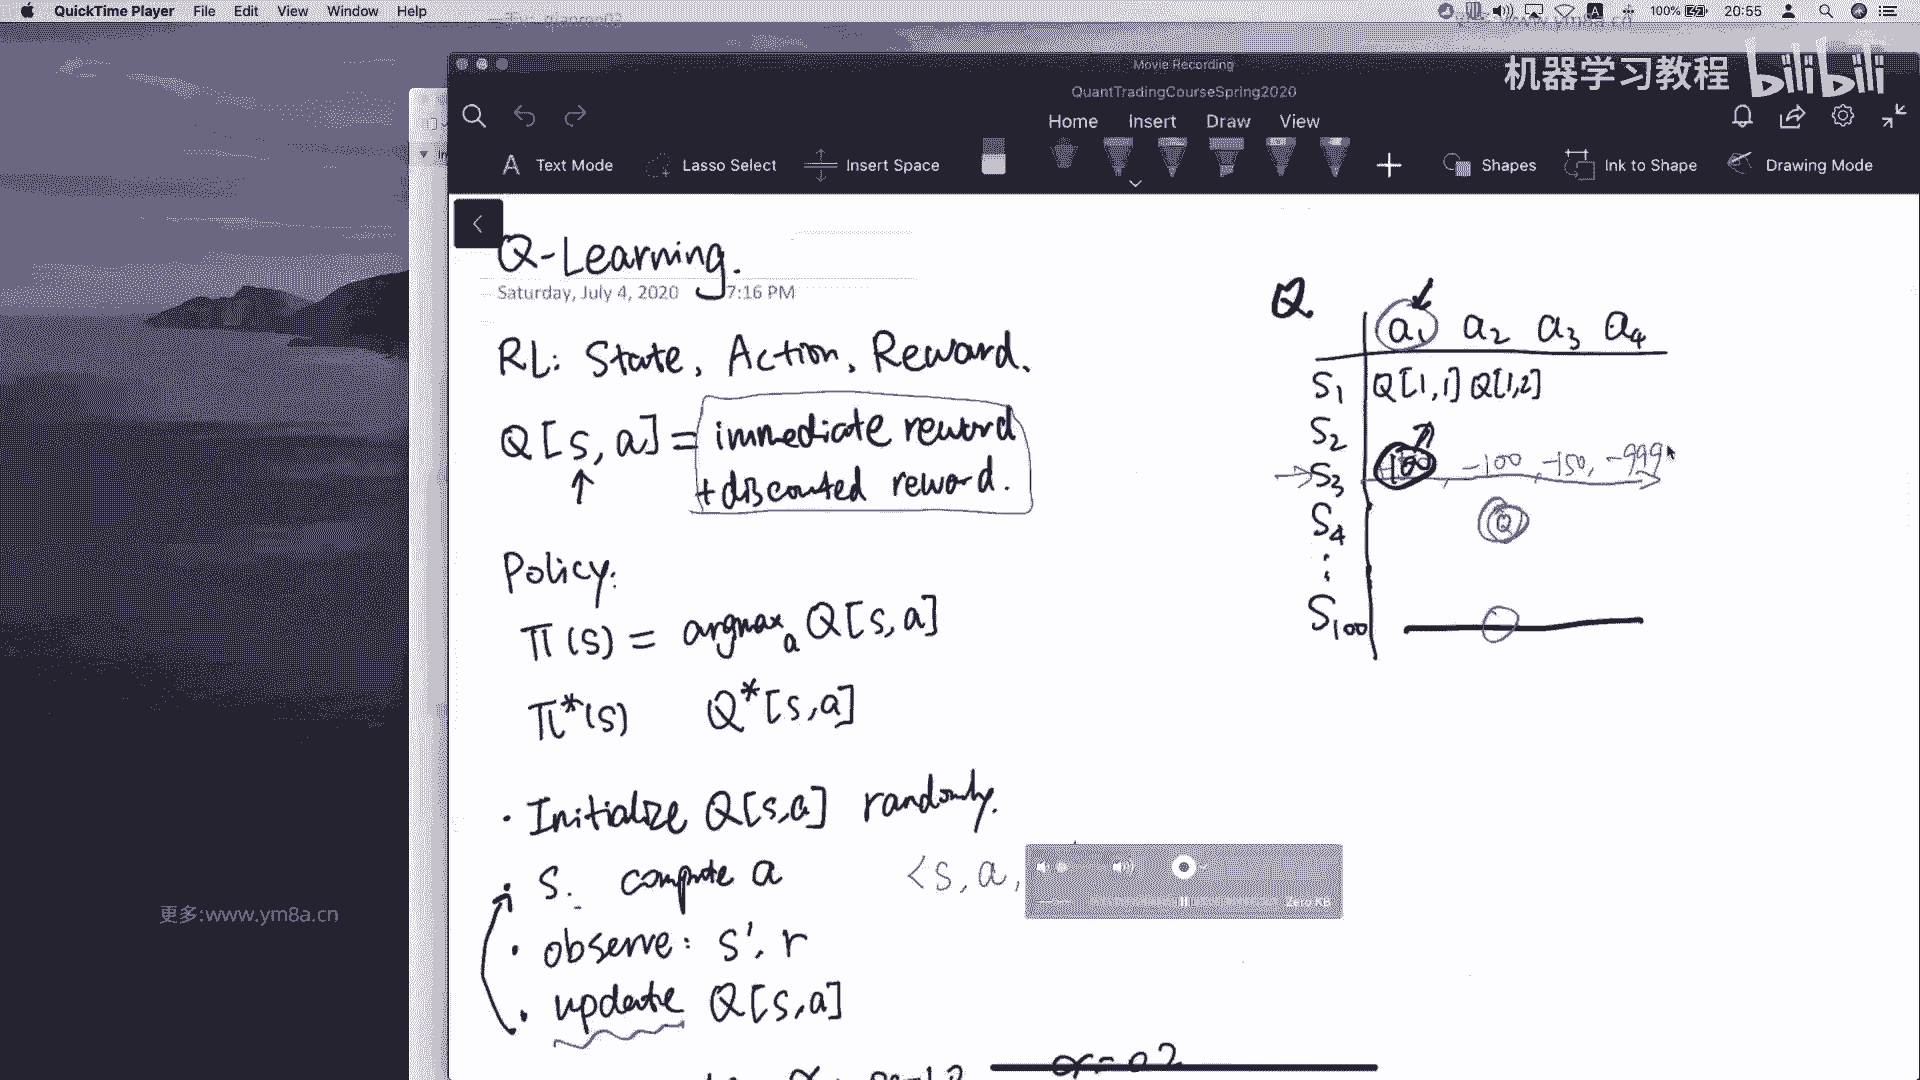 QuickTime Player File Edit View Window Help
100% 20:55
更多:www.ym8a.cn
机器学习教程 bilibili
Movie Recording
QuantTradingCourseSpring2020
Home Insert Draw View
Text Mode Lasso Select Insert Space Shapes Ink to Shape Drawing Mode
Q-Learning.
Saturday, July 4, 2020 7:16 PM
RL: State, Action, Reward.
Q[s,a] = immediate reword
+discounted reword.
Policy:
π(s) = argmax a Q[s,a]
π*(s) Q*[s,a]
· Initialize Q[s,a] randomly.
· s. compute a <s, a,
· observe: s', r
· update Q[s,a]
Zero KB
Q
a1 a2 a3 a4
S1 Q[1,1] Q[1,2]
S2
S3 -100, -150, -999
S4 Q
⋮
S100
更多:www.ym8a.cn